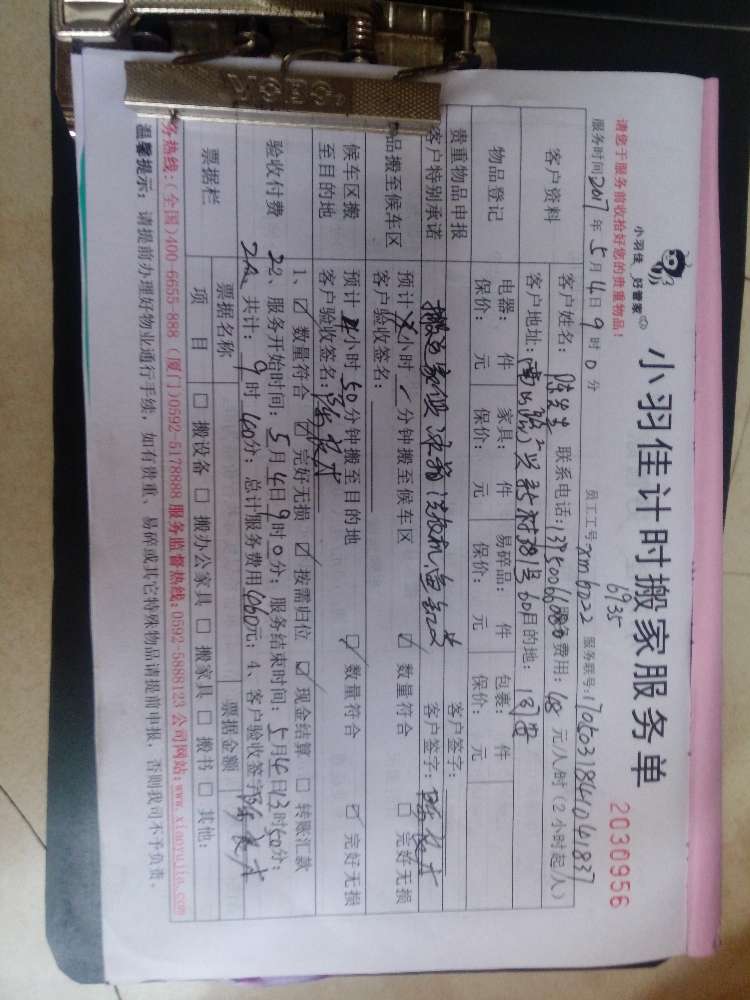 小羽佳 好管家
小羽佳计时搬家服务单
2030956
请您于服务前收拾好您的贵重物品!
6935
服务时间2017年5月4日9时0分 员工工号xm6022 服务联号:
客户资料
客户姓名: 陈先生 联系电话: 服务费用:68元/人/时(2小时起/人)
客户地址: 目的地: 同安
物品登记
电器: 件 家具: 件 易碎品: 件 包裹: 件
保价: 元 保价: 元 保价: 元 保价: 元
贵重物品申报
客户签字:
客户特别承诺
客户签字:
品搬至候车区
预计 小时 分钟搬至候车区 ☑ 数量符合 ☐ 完好无损
客户验收签名:
候车区搬至目的地
预计 小时50分钟搬至目的地 ☑ 数量符合 ☑ 完好无损
客户验收签名:
验收付费
1、☑ 数量符合 ☑ 完好无损 ☑ 按需归位 ☑ 现金结算 ☐ 转账汇款
2、服务开始时间: 5月4日9时0分; 服务结束时间: 5月4日13时50分;
共计: 9时40分; 总计服务费用 元; 4、客户验收签字
票据栏
票据名称 票据金额
项目 ☐ 搬设备 ☐ 搬办公家具 ☐ 搬家具 ☐ 搬书 ☐ 其他:
务热线:(全国)400-6655-888 (厦门)0592-5178888 服务监督热线:0592-5888123 公司网站:www.xiaoyujia.com
温馨提示: 请提前办理好物业通行手续, 如有贵重、易碎或其它特殊物品请提前申报, 否则我司不予负责。